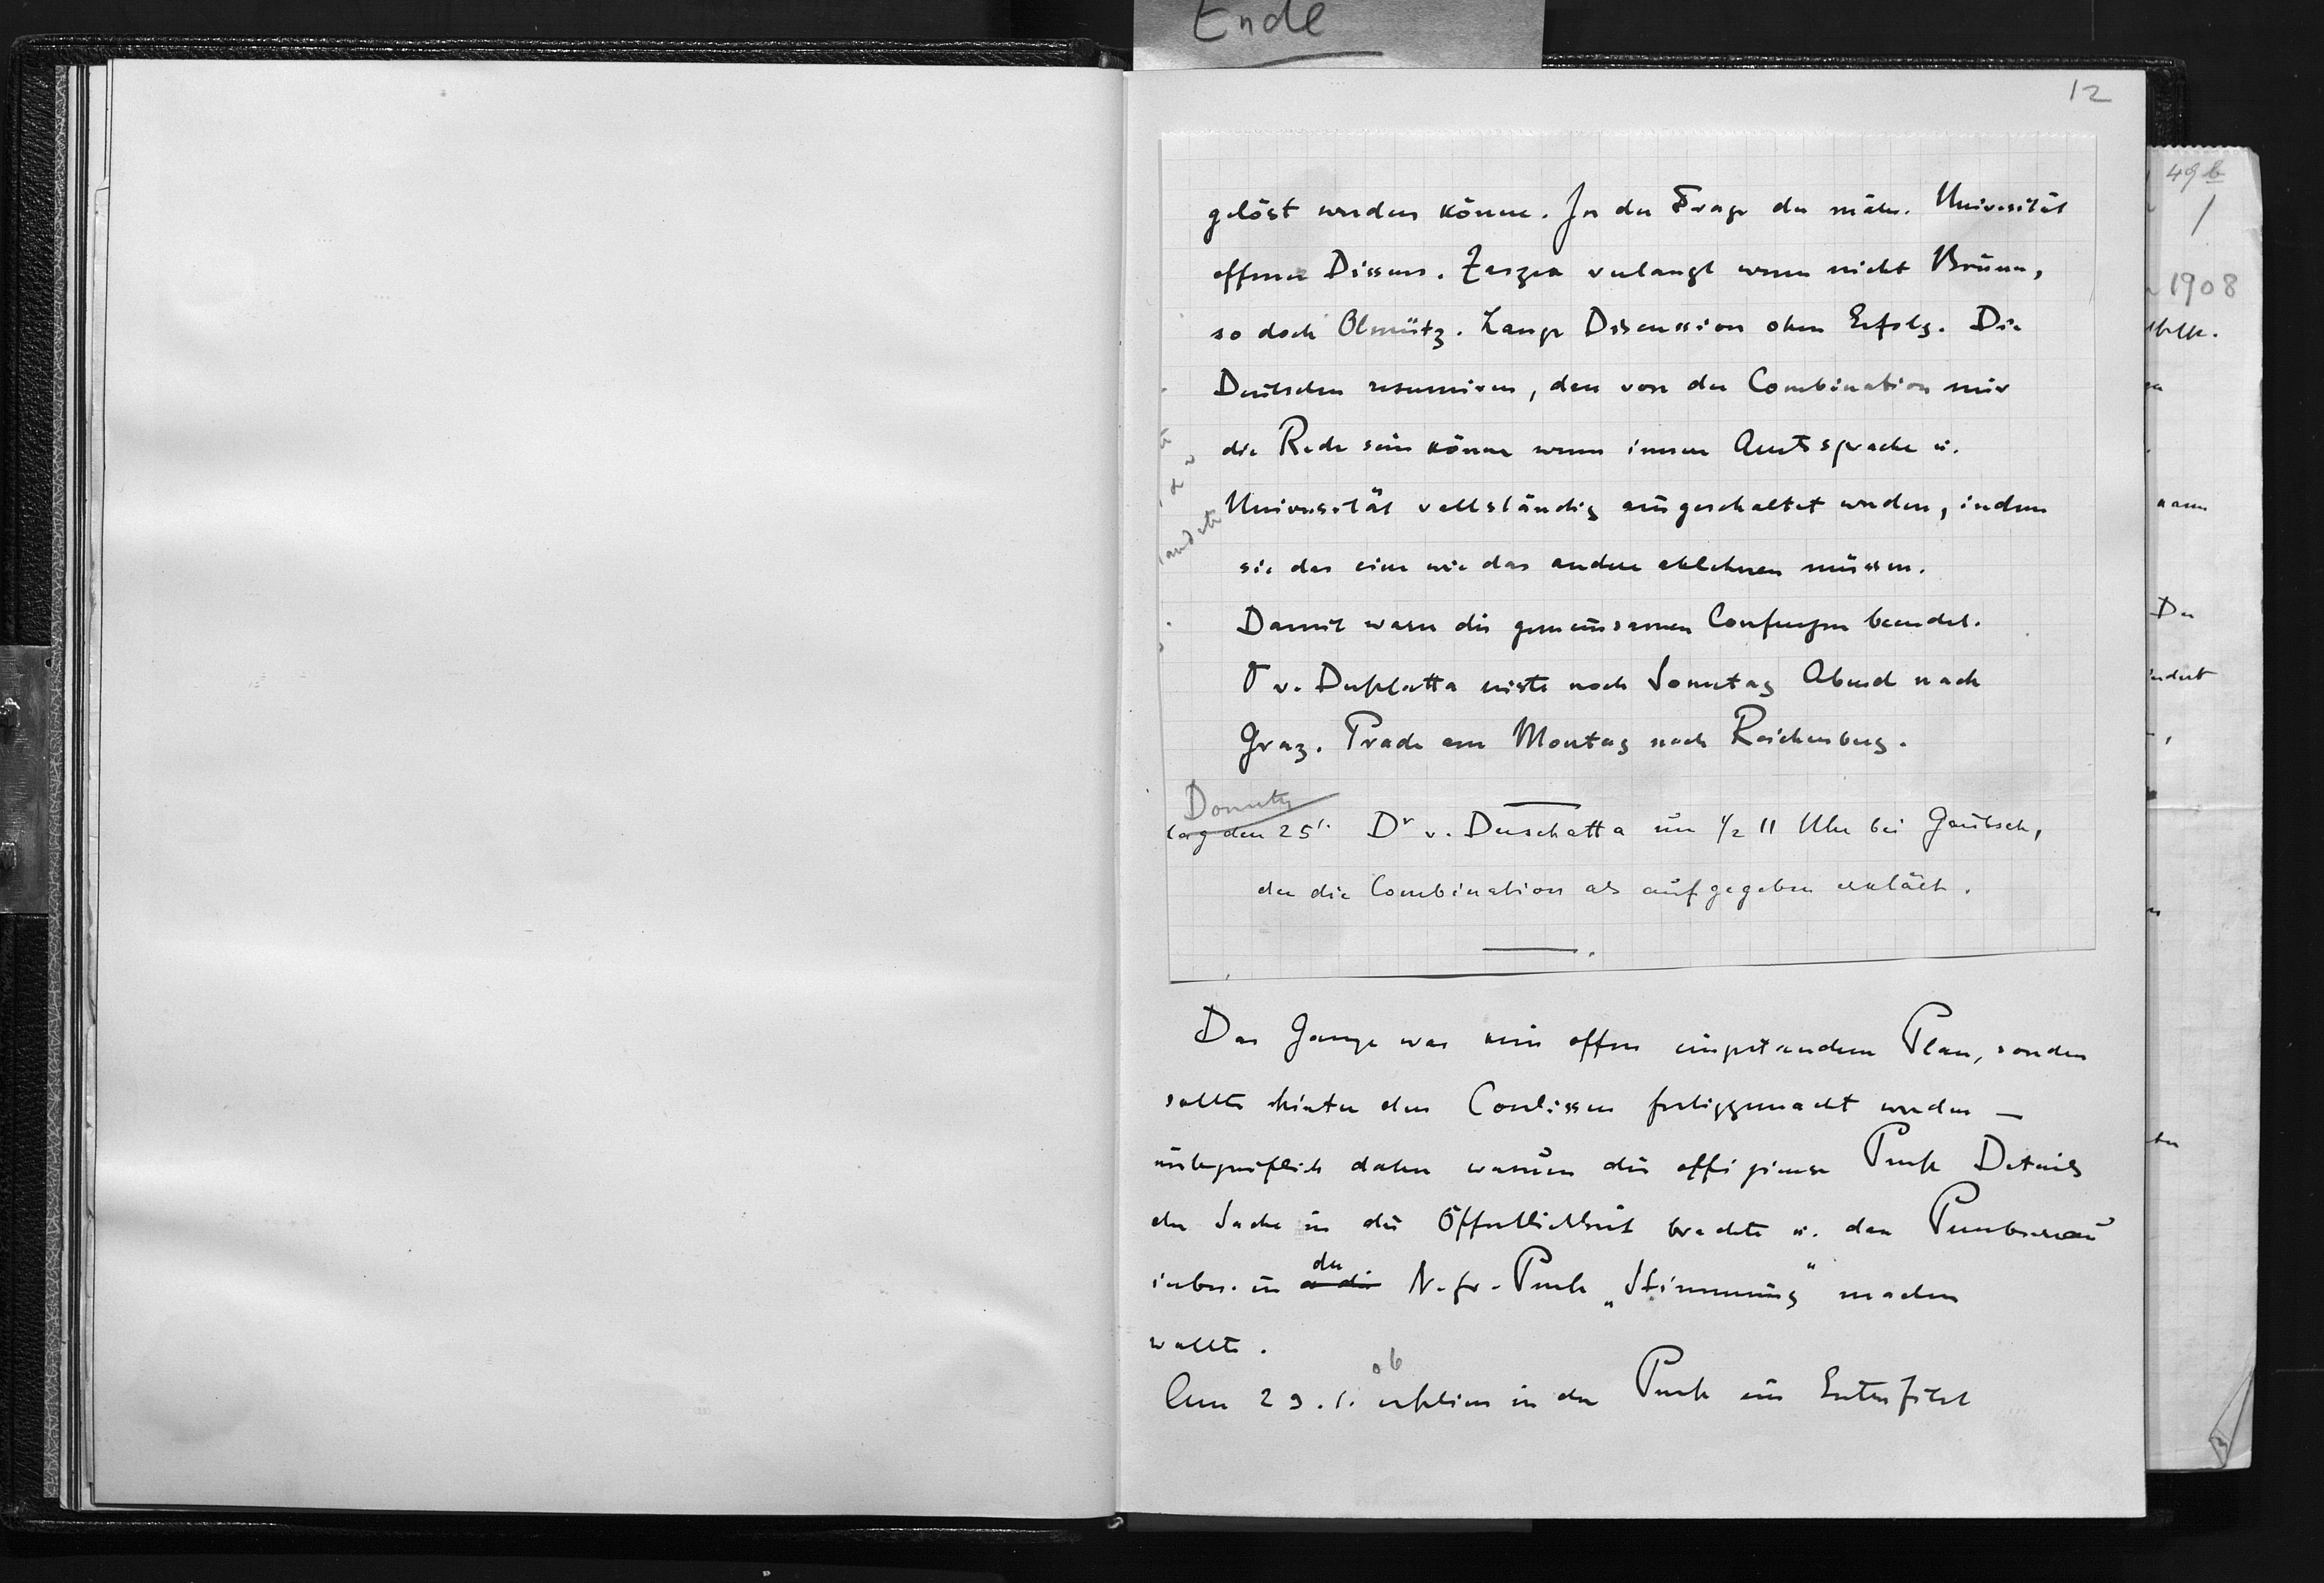 Ende
12
gelöst werden könne. In der Frage der mähr. Universität
offener Dissens. Zazvorka verlangt wenn nicht Brünn,
so doch Olmütz. Lange Discussion ohne Erfolg. Die
Deutschen resumiren, das von der Combination nur
die Rede sein könne wenn innere Amtssprache u.
Universität vollständig ausgeschaltet werden, indem
sie das eine wie das andere ablehnen müssen.
Damit waren die gemeinsamen Conferenzen beendet.
v. Derschatta reiste noch Sonntag Abend nach
Graz. Prade am Montag nach Reichenberg.
tag den 25/1. Dr v. Derschatta um 1/2 11 Uhr bei Gautsch,
der die Combination als aufgegeben erklärt.
Das Ganze war kein offen eingestandener Plan, sondern
sollte hinter den Coulissen fertiggemacht werden —
unbegreiflich daher warum die offiziöse Presse Details
der Sache in die Öffentlichkeit brachte u. das Pressbureau
insbes. in der N. fr. Presse „Stimmung" machen
wollte.
ob
Am 29.1. erschien in der Presse ein Entrefilet
49b
1
1908
Der